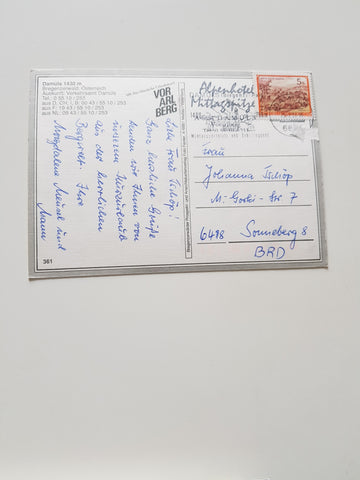 Damüls 1430 m
Bregenzerwald, Österreich
Auskunft: Verkehrsamt Damüls
Tel.: 0 55 10 / 253
aus D, CH, I, B: 00 43 / 55 10 / 253
aus F: 19 43 / 55 10 / 253
aus NL: 09 43 / 55 10 / 253
VOR
ARL
BERG
Liebe Frau Tschöp!
Ganz herzliche Grüße
senden wir Ihnen von
unserem Kurzurlaub
in der herrlichen
Bergwelt. Ihre
Magdalena und
Mann
361
Alpenhotel
Mittagspitze
DAMÜLS
5 S
Frau
Johanna Tschöp
M.-Gorki-Str 7
6418 Sonneberg 8
BRD